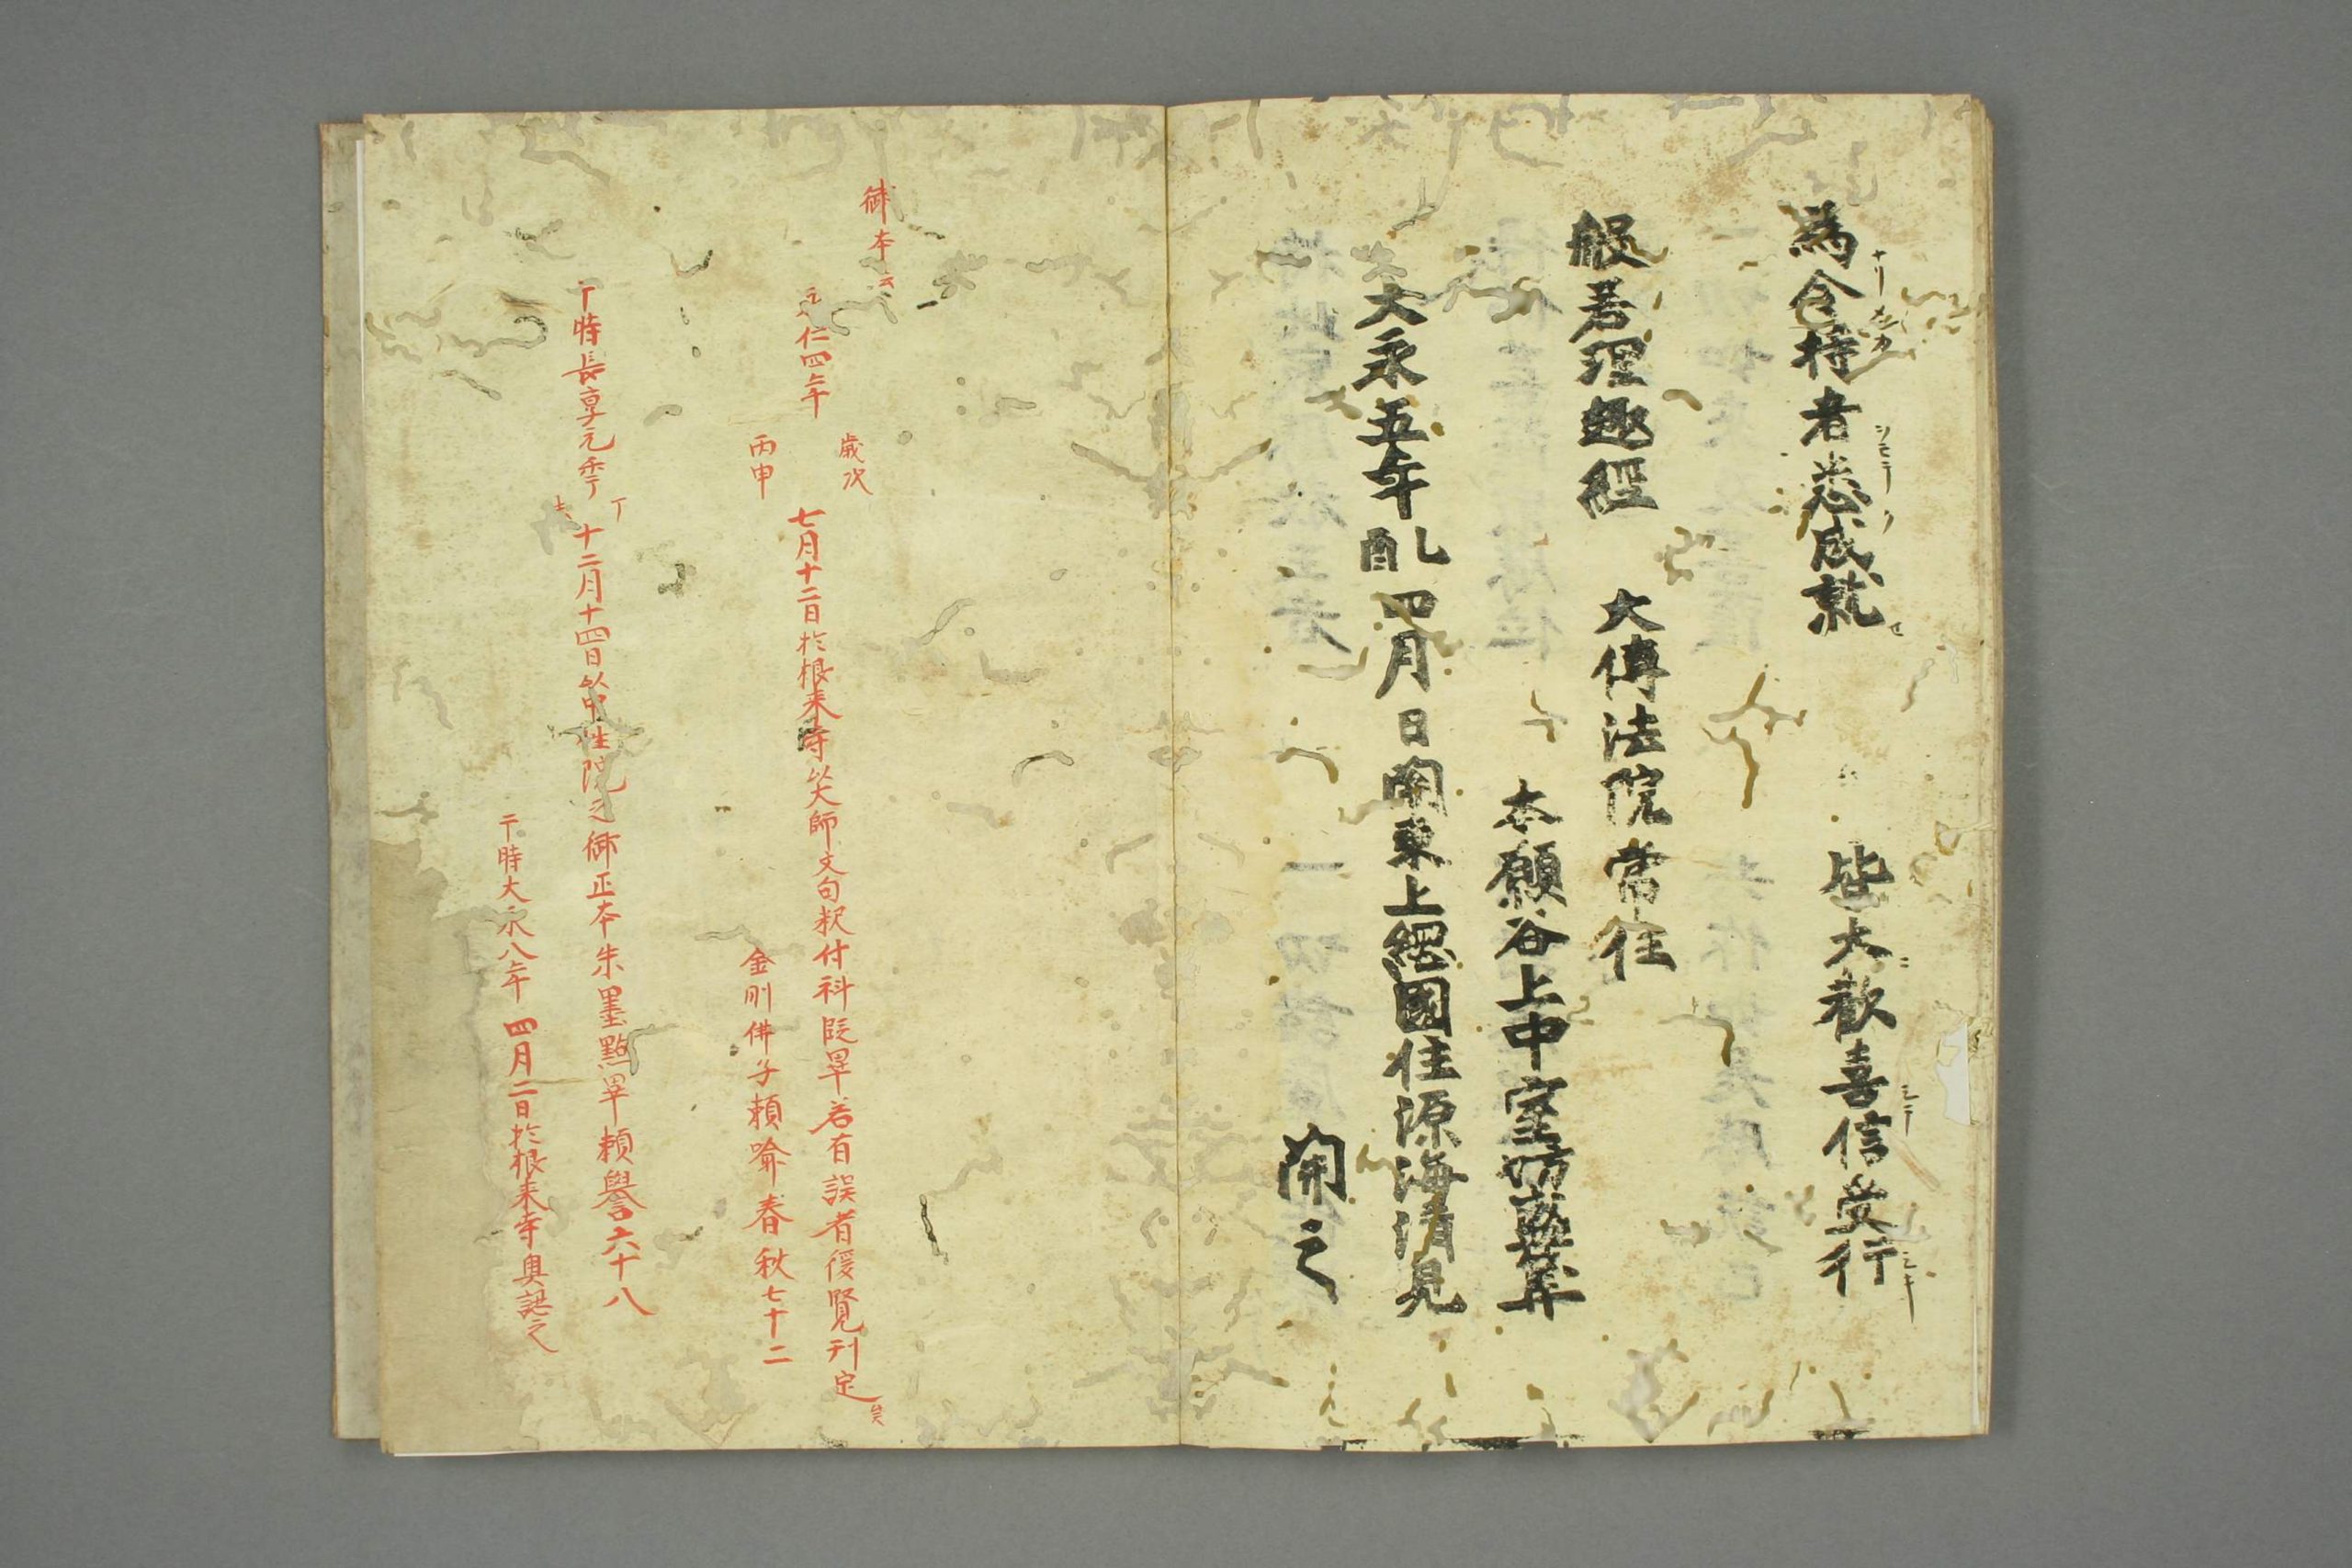 為令持者悉成就
皆大歓喜信受行
般若理趣経
大傳法院常住
本願谷上中室坊
大永五年乙酉四月日関東上総國住源海清見
開之
御本云
永仁四年歳次丙申七月十二日於根来寺以大師文句釈付科段畢若有誤者後覧刊定矣
金剛佛子頼瑜春秋七十二
于時長享元年丁十二月十四日以中性院之御正本朱墨點畢頼譽六十八
于時大永八年四月二日於根来寺奥誌之